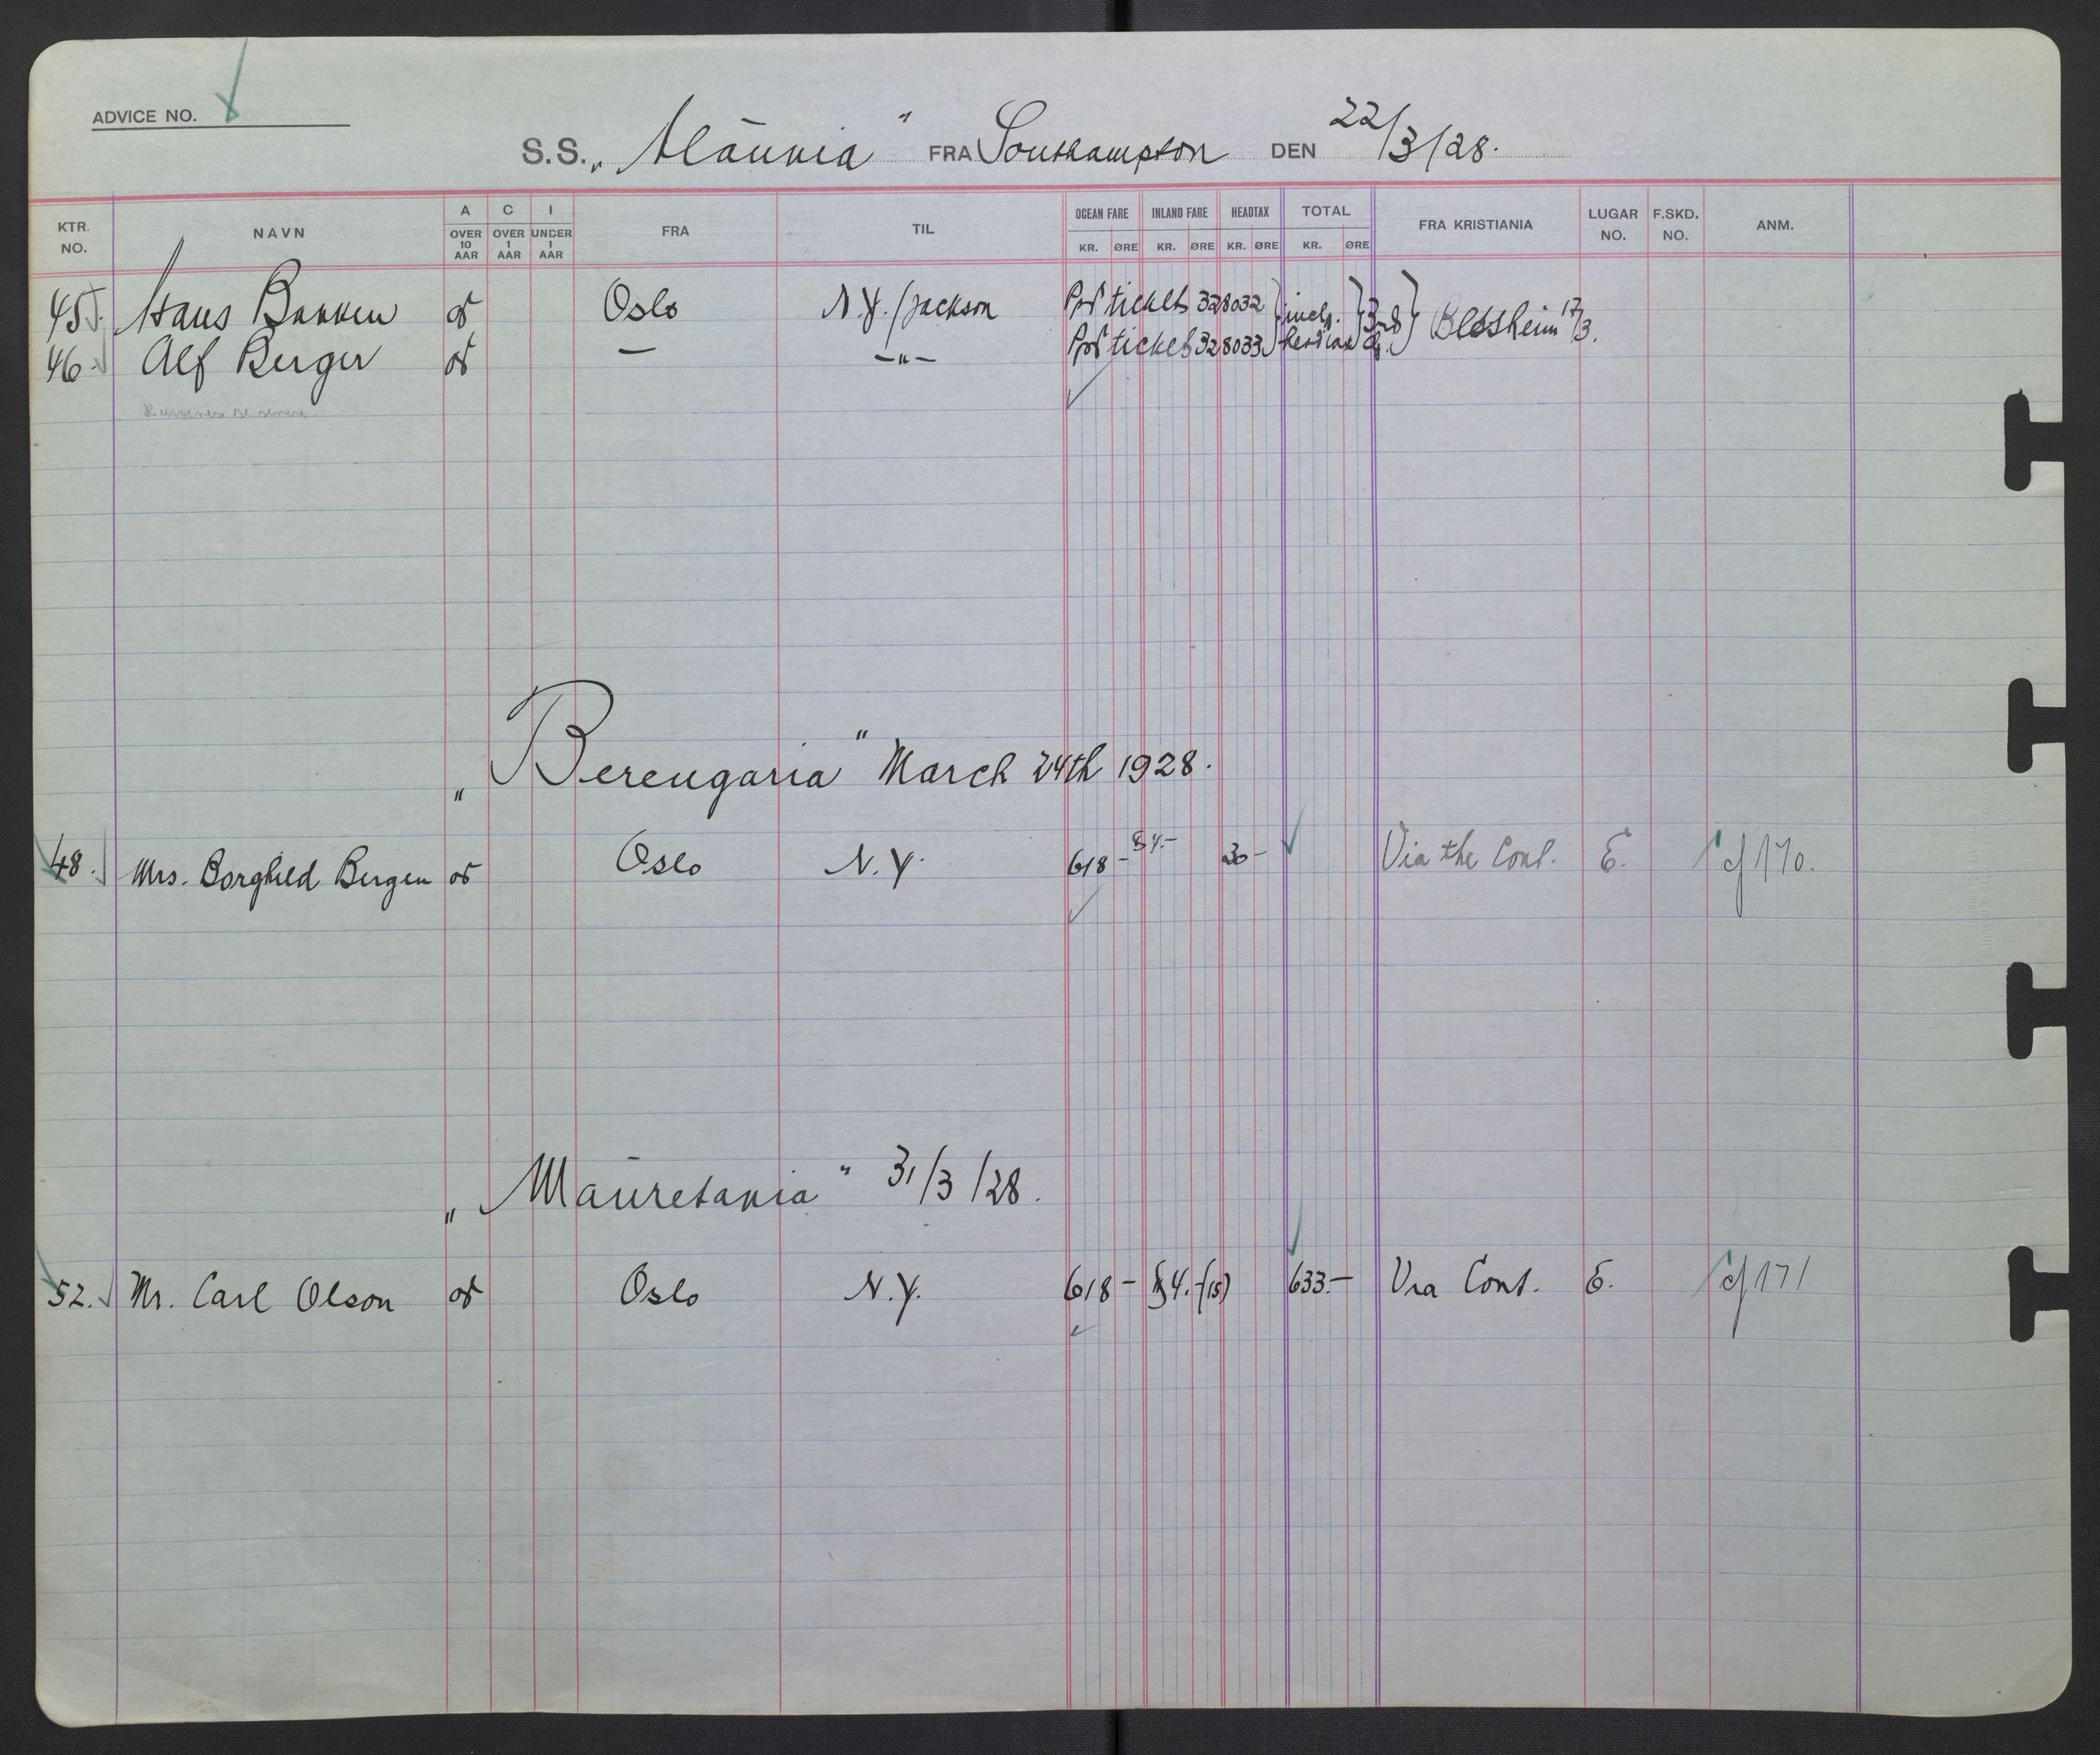 ADVICE NO.
S.S. „Alaunia" FRA Southampton DEN 22/3/28.
KTR. NO. NAVN A OVER 10 AAR C OVER 1 AAR I UNDER 1 AAR FRA TIL OCEAN FARE KR. ØRE INLAND FARE KR. ØRE HEADTAX KR. ØRE TOTAL KR. ØRE FRA KRISTIANIA LUGAR NO. F.SKD. NO. ANM.
45. Hans Bakken Oslo N.Y./Jackson Ppd tickets 328032 incl. 3rd Blessheim 17/3.
46. Alf Berger — —"— Ppd ticket 328033 headtax cl.
„Berengaria" March 24th 1928.
48. Mrs. Borghild Bergen Oslo N.Y. 618- $4.- 20- Via the Cont. E. cf 170.
„Mauretania" 31/3/28.
52. Mr. Carl Olson Oslo N.Y. 618- $4.-(15) 633.- Via Cont. E. cf 171